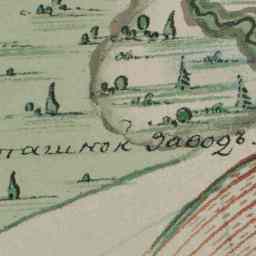 ташнок Заводъ.